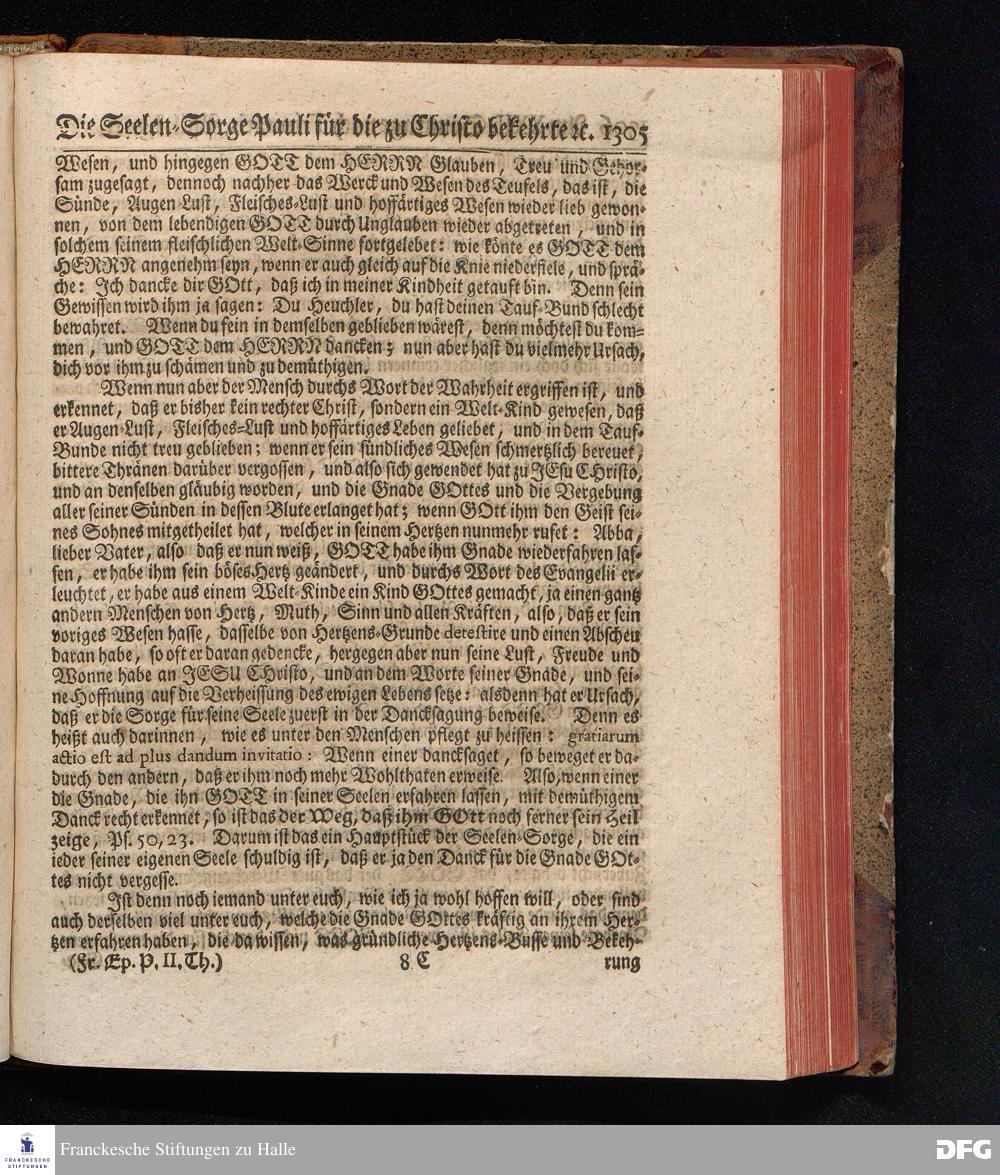 Die Seelen-Sorge Pauli für die zu Christo bekehrte ꝛc. 1305
Wesen, und hingegen GOTT dem HERRN Glauben, Treu und Gehor-
sam zugesagt, dennoch nachher das Werck und Wesen des Teufels, das ist, die
Sünde, Augen-Lust, Fleisches-Lust und hoffärtiges Wesen wieder lieb gewon-
nen, von dem lebendigen GOTT durch Unglauben wieder abgetreten, und in
solchem seinem fleischlichen Welt-Sinne fortgelebet: wie könte es GOTT dem
HERRN angenehm seyn, wenn er auch gleich auf die Knie niederfiele, und sprä-
che: Ich dancke dir GOtt, daß ich in meiner Kindheit getauft bin. Denn sein
Gewissen wird ihm ja sagen: Du Heuchler, du hast deinen Tauf-Bund schlecht
bewahret. Wenn du fein in demselben geblieben wärest, denn möchtest du kom-
men, und GOTT dem HERRN dancken; nun aber hast du vielmehr Ursach,
dich vor ihm zu schämen und zu demüthigen.
Wenn nun aber der Mensch durchs Wort der Wahrheit ergriffen ist, und
erkennet, daß er bisher kein rechter Christ, sondern ein Welt-Kind gewesen, daß
er Augen-Lust, Fleisches-Lust und hoffärtiges Leben geliebet, und in dem Tauf-
Bunde nicht treu geblieben; wenn er sein sündliches Wesen schmertzlich bereuet,
bittere Thränen darüber vergossen, und also sich gewendet hat zu JEsu CHristo,
und an denselben gläubig worden, und die Gnade GOttes und die Vergebung
aller seiner Sünden in dessen Blute erlanget hat; wenn GOtt ihm den Geist sei-
nes Sohnes mitgetheilet hat, welcher in seinem Hertzen nunmehr rufet: Abba,
lieber Vater, also daß er nun weiß, GOTT habe ihm Gnade wiederfahren las-
sen, er habe ihm sein böses Hertz geändert, und durchs Wort des Evangelii er-
leuchtet, er habe aus einem Welt-Kinde ein Kind GOttes gemacht, ja einen gantz
andern Menschen von Hertz, Muth, Sinn und allen Kräften, also, daß er sein
voriges Wesen hasse, dasselbe von Hertzens-Grunde detestire und einen Abscheu
daran habe, so oft er daran gedencke, hergegen aber nun seine Lust, Freude und
Wonne habe an JESU CHristo, und an dem Worte seiner Gnade, und sei-
ne Hoffnung auf die Verheissung des ewigen Lebens setze: alsdenn hat er Ursach,
daß er die Sorge für seine Seele zuerst in der Dancksagung beweise. Denn es
heißt auch darinnen, wie es unter den Menschen pflegt zu heissen: gratiarum
actio est ad plus dandum invitatio: Wenn einer dancksaget, so beweget er da-
durch den andern, daß er ihm noch mehr Wohlthaten erweise. Also, wenn einer
die Gnade, die ihn GOTT in seiner Seelen erfahren lassen, mit demüthigem
Danck recht erkennet, so ist das der Weg, daß ihm GOtt noch ferner sein Heil
zeige, Ps. 50, 23. Darum ist das ein Hauptstück der Seelen-Sorge, die ein
ieder seiner eigenen Seele schuldig ist, daß er ja den Danck für die Gnade GOt-
tes nicht vergesse.
Ist denn noch iemand unter euch, wie ich ja wohl hoffen will, oder sind
auch derselben viel unter euch, welche die Gnade GOttes kräftig an ihrem Her-
tzen erfahren haben, die da wissen, was gründliche Hertzens-Busse und Bekeh-
(Fr. Ep. P. II. Th.) 8 C rung
FRANCKESCHE STIFTUNGEN
Franckesche Stiftungen zu Halle
DFG